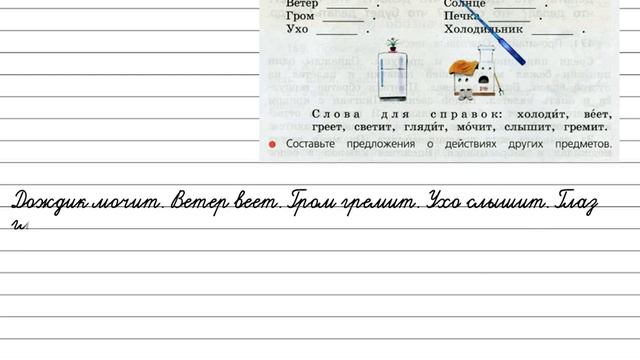 Ветер ______ . Солнце ______ .
Гром ______ . Печка ______ .
Ухо ______ . Холодильник ______ .
Слова для справок: холоди́т, ве́ет,
греет, светит, гляди́т, мо́чит, слышит, гремит.
Составьте предложения о действиях других предметов.
Дождик мочит. Ветер веет. Гром гремит. Ухо слышит. Глаз